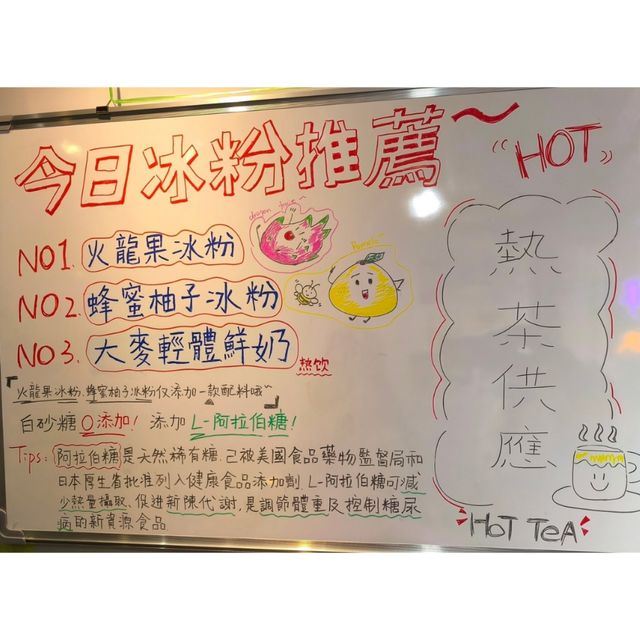 今日冰粉推薦～
“HOT”
dragon fruit
NO1. 火龍果冰粉
Pomelo
NO2. 蜂蜜柚子冰粉
NO3. 大麥輕體鮮奶 熱饮
火龍果冰粉、蜂蜜柚子冰粉仅添加一款配料哦~
白砂糖0添加! 添加 L-阿拉伯糖!
Tips: 阿拉伯糖是天然稀有糖,已被美國食品藥物監督局和
日本厚生省批准列入健康食品添加劑. L-阿拉伯糖可減
少熱量攝取、促進新陳代謝,是調節體重及控制糖尿
病的新資源食品
熱茶供應
HOT TEA